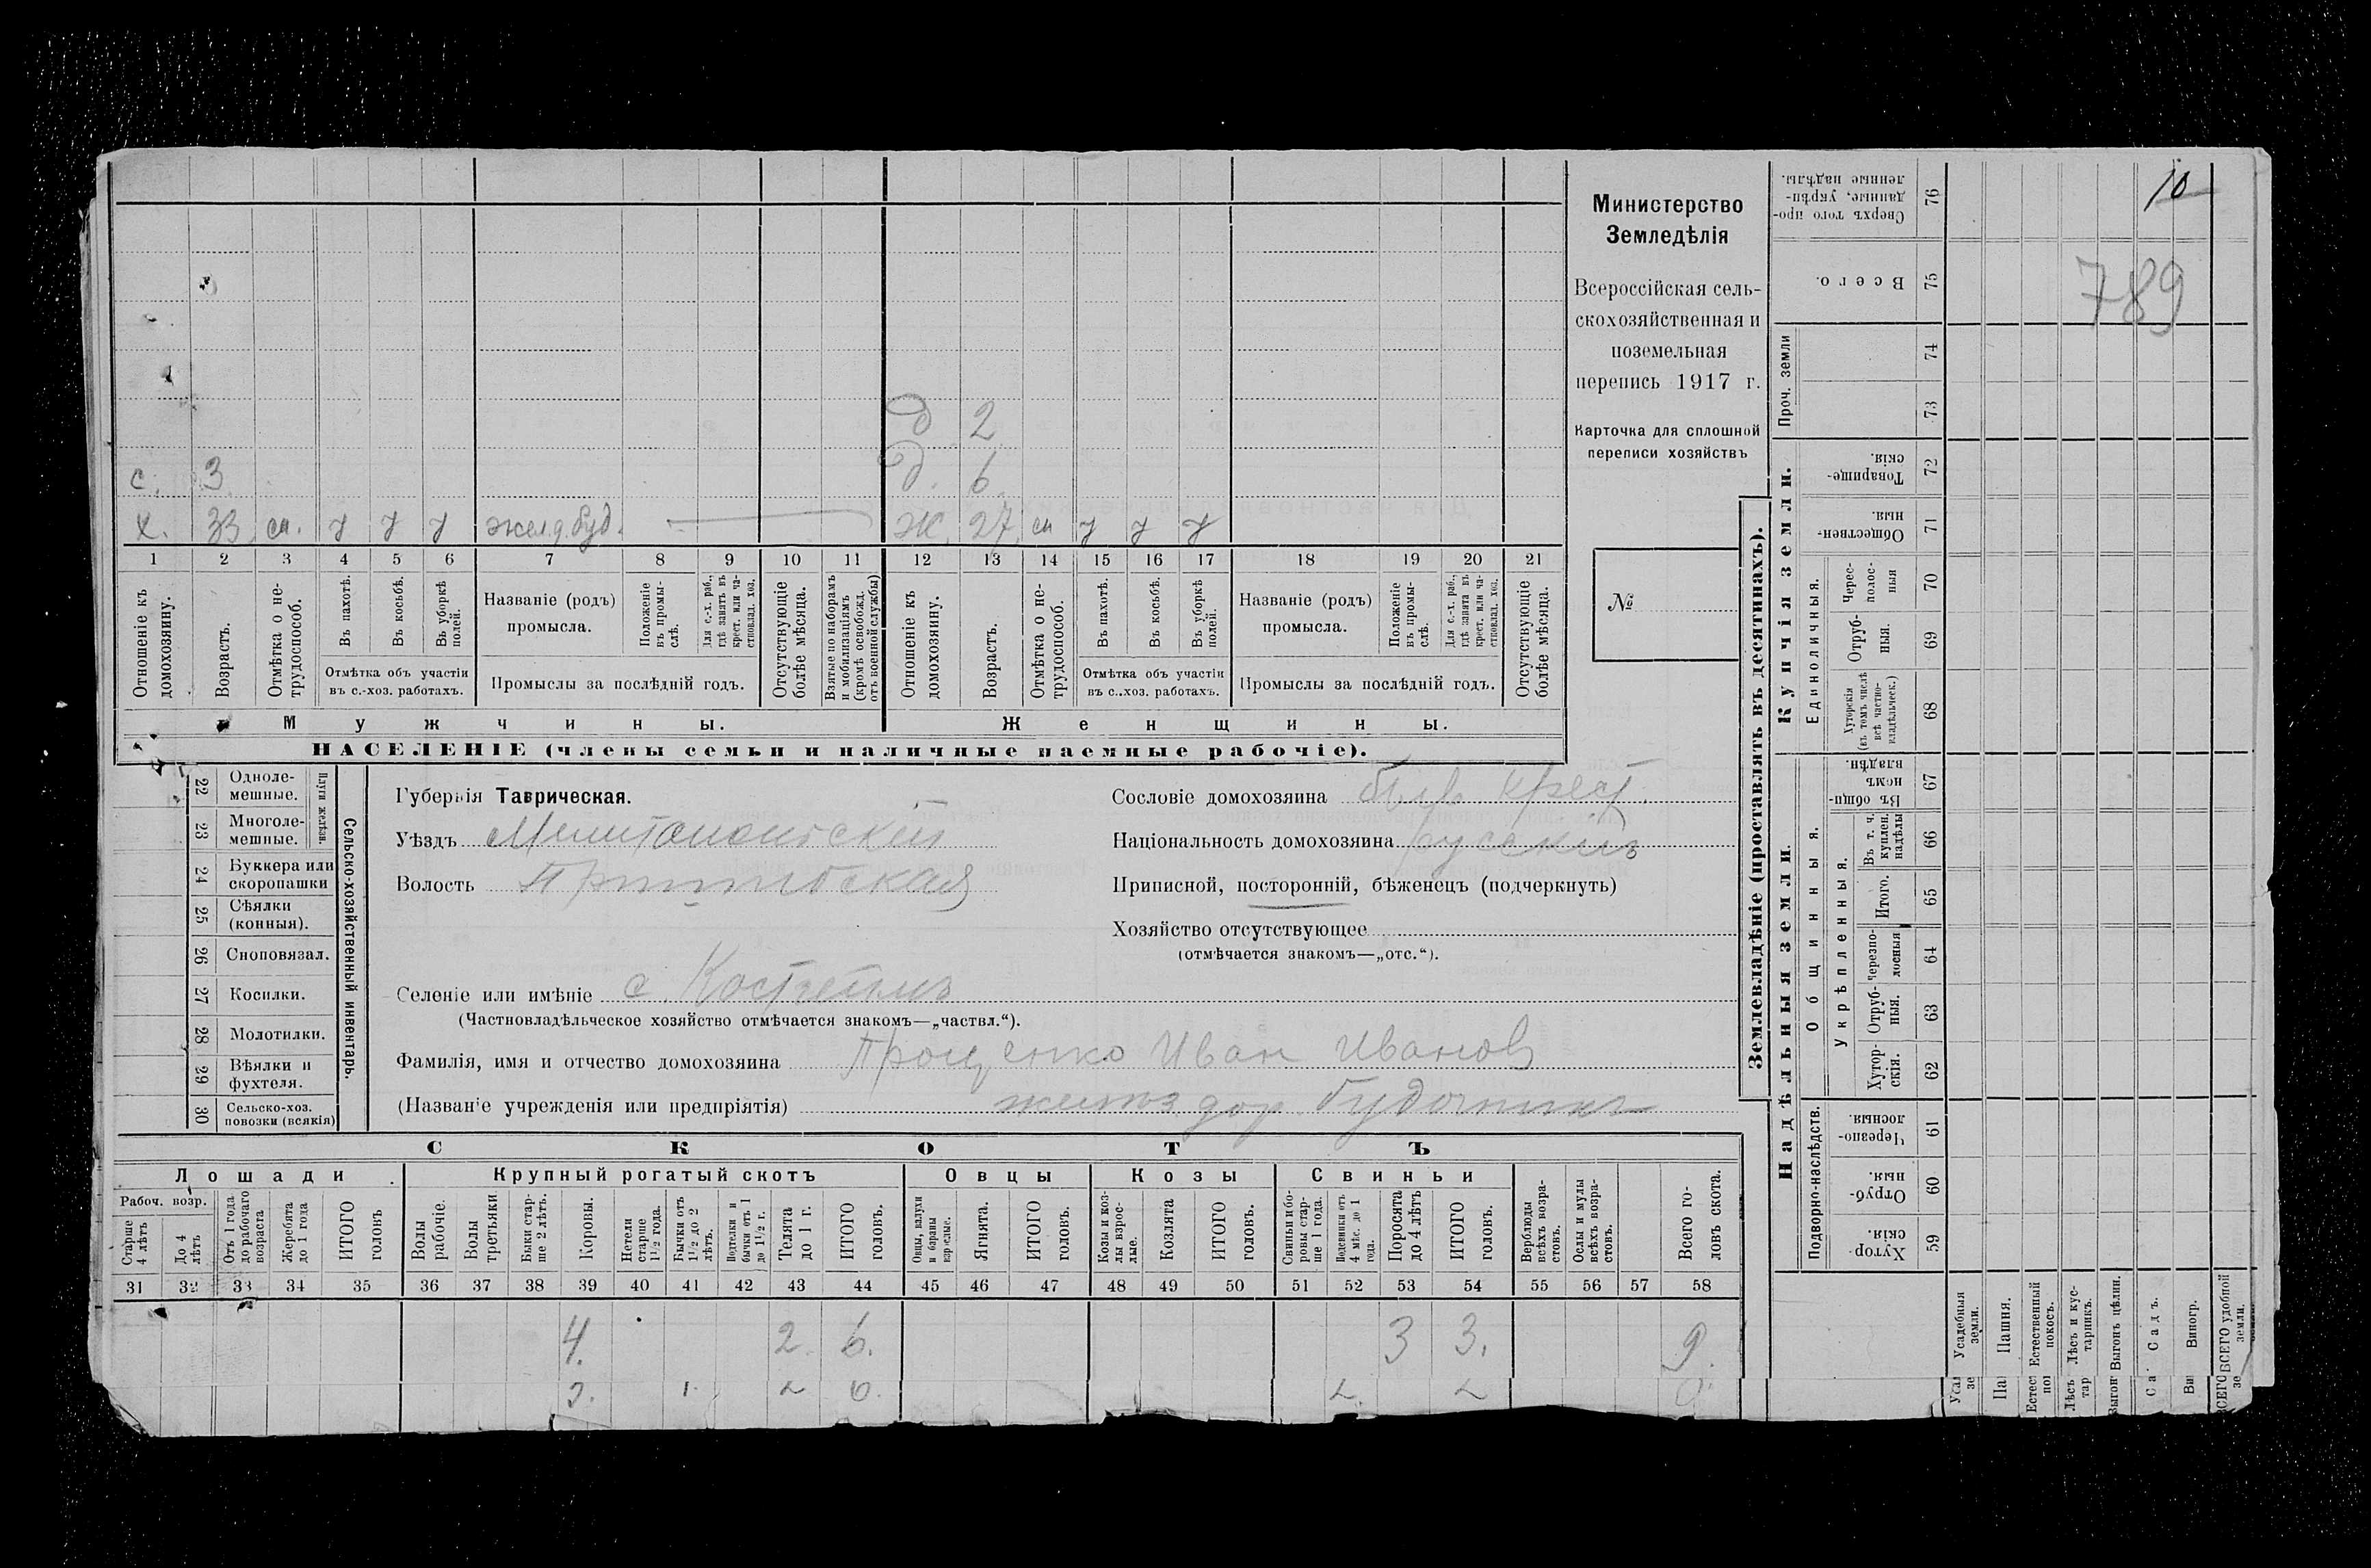 10
789
Министерство
Земледѣлія
Всероссійская сель-
скохозяйственная и
поземельная
перепись 1917 г.
Карточка для сплошной
переписи хозяйствъ
№
д 2
д. 6
с. 3
х. 33 см. у у у жел.д.буд. Ж. 27 см у у у
1 2 3 4 5 6 7 8 9 10 11 12 13 14 15 16 17 18 19 20 21
Отношеніе къ домохозяину.
Возрастъ.
Отмѣтка о не-трудоспособ.
Въ пахотѣ.
Въ косьбѣ.
Въ уборкѣ полей.
Отмѣтка объ участіи въ с.-хоз. работахъ.
Названіе (родъ) промысла.
Положеніе въ промы-слѣ.
Для с.-х. раб., гдѣ занятъ въ крест. или ча-стновлад. хоз.
Промыслы за послѣдній годъ.
Отсутствующіе болѣе мѣсяца.
Взятые по наборамъ и мобилизаціямъ (кромѣ освобожд. отъ военной службы)
Отношеніе къ домохозяину.
Возрастъ.
Отмѣтка о не-трудоспособ.
Въ пахотѣ.
Въ косьбѣ.
Въ уборкѣ полей.
Отмѣтка объ участіи въ с..хоз. работахъ.
Названіе (родъ) промысла.
Положеніе въ промы-слѣ.
Для с.-х. раб., гдѣ занята въ крест. или ча-стновлад. хоз.
Промыслы за послѣдній годъ.
Отсутствующіе болѣе мѣсяца.
Мужчины. Женщины.
НАСЕЛЕНІЕ (члены семьи и наличные наемные рабочіе).
Сельско-хозяйственный инвентарь.
Плуги желѣзн.
22 Одноле-мешные.
23 Многоле-мешные.
24 Буккера или скоропашки
25 Сѣялки (конныя).
26 Сноповязал.
27 Косилки.
28 Молотилки.
29 Вѣялки и фухтеля.
30 Сельско-хоз. повозки (всякія)
Губернія Таврическая.
Уѣздъ Мелитопольскій
Волость Пришибская
Селеніе или имѣніе с. Костетинъ
(Частновладѣльческое хозяйство отмѣчается знакомъ—„частвл.“).
Фамилія, имя и отчество домохозяина Проценко Иван Иванов
(Названіе учрежденія или предпріятія) желѣз. дор. будочникъ
Сословіе домохозяина крест.
Національность домохозяина русскій
Приписной, посторонній, бѣженецъ (подчеркнуть)
Хозяйство отсутствующее
(отмѣчается знакомъ—„отс.“).
СКОТЪ
Лошади Крупный рогатый скотъ Овцы Козы Свиньи
Рабоч. возр.
Старше 4 лѣтъ
До 4 лѣтъ
Отъ 1 года до рабочаго возраста
Жеребята до 1 года
ИТОГО головъ
Волы рабочіе.
Волы третьяки
Быки стар-ше 2 лѣтъ.
Коровы.
Нетели старше 1½ года.
Бычки отъ 1½ до 2 лѣтъ.
Подтелки и бычки отъ 1 до 1½ г.
Телята до 1 г.
ИТОГО головъ.
Овцы, валухи и бараны взрослые.
Ягнята.
ИТОГО головъ.
Козы и коз-лы взрос-лые.
Козлята
ИТОГО головъ.
Свиньи и бо-ровы стар-ше 1 года.
Подсвинки отъ 4 мѣс. до 1 года.
Поросята до 4 лѣтъ
ИТОГО головъ.
Верблюды всѣхъ возра-стовъ.
Ослы и мулы всѣхъ возра-стовъ.
Всего го-ловъ скота.
31 32 33 34 35 36 37 38 39 40 41 42 43 44 45 46 47 48 49 50 51 52 53 54 55 56 57 58
4. 2. 6. 3 3. 9.
3. 1. 2 6. 2. 2
Землевладѣніе (проставлять въ десятинахъ).
Сверхъ того про-данные, укрѣп-ленные надѣлы. 76
Всего. 75
Проч. земли 74 73
Купчія земли.
Товарище-скія. 72
Обществен-ныя. 71
Единоличныя.
Черес-полос-ныя 70
Отруб-ныя. 69
Хуторскія (въ томъ числѣ всѣ частно-владѣльческ.) 68
Надѣльныя земли
Общинныя.
Въ общи-номъ владѣн. 67
Укрѣпленныя.
Въ т. ч. куплен. надѣлы 66
Итого. 65
Черезпо-лосныя 64
Отруб-ныя. 63
Хутор-скія. 62
Подворно-наслѣдств.
Черезпо-лосныя. 61
Отруб-ныя. 60
Хутор-скія. 59
Усадебныя земли.
Пашня.
Естественный покосъ.
Лѣсъ и кус-тарникъ.
Выгонъ цѣлин.
Садъ.
Виногр.
ВСЕГО удобной земли.